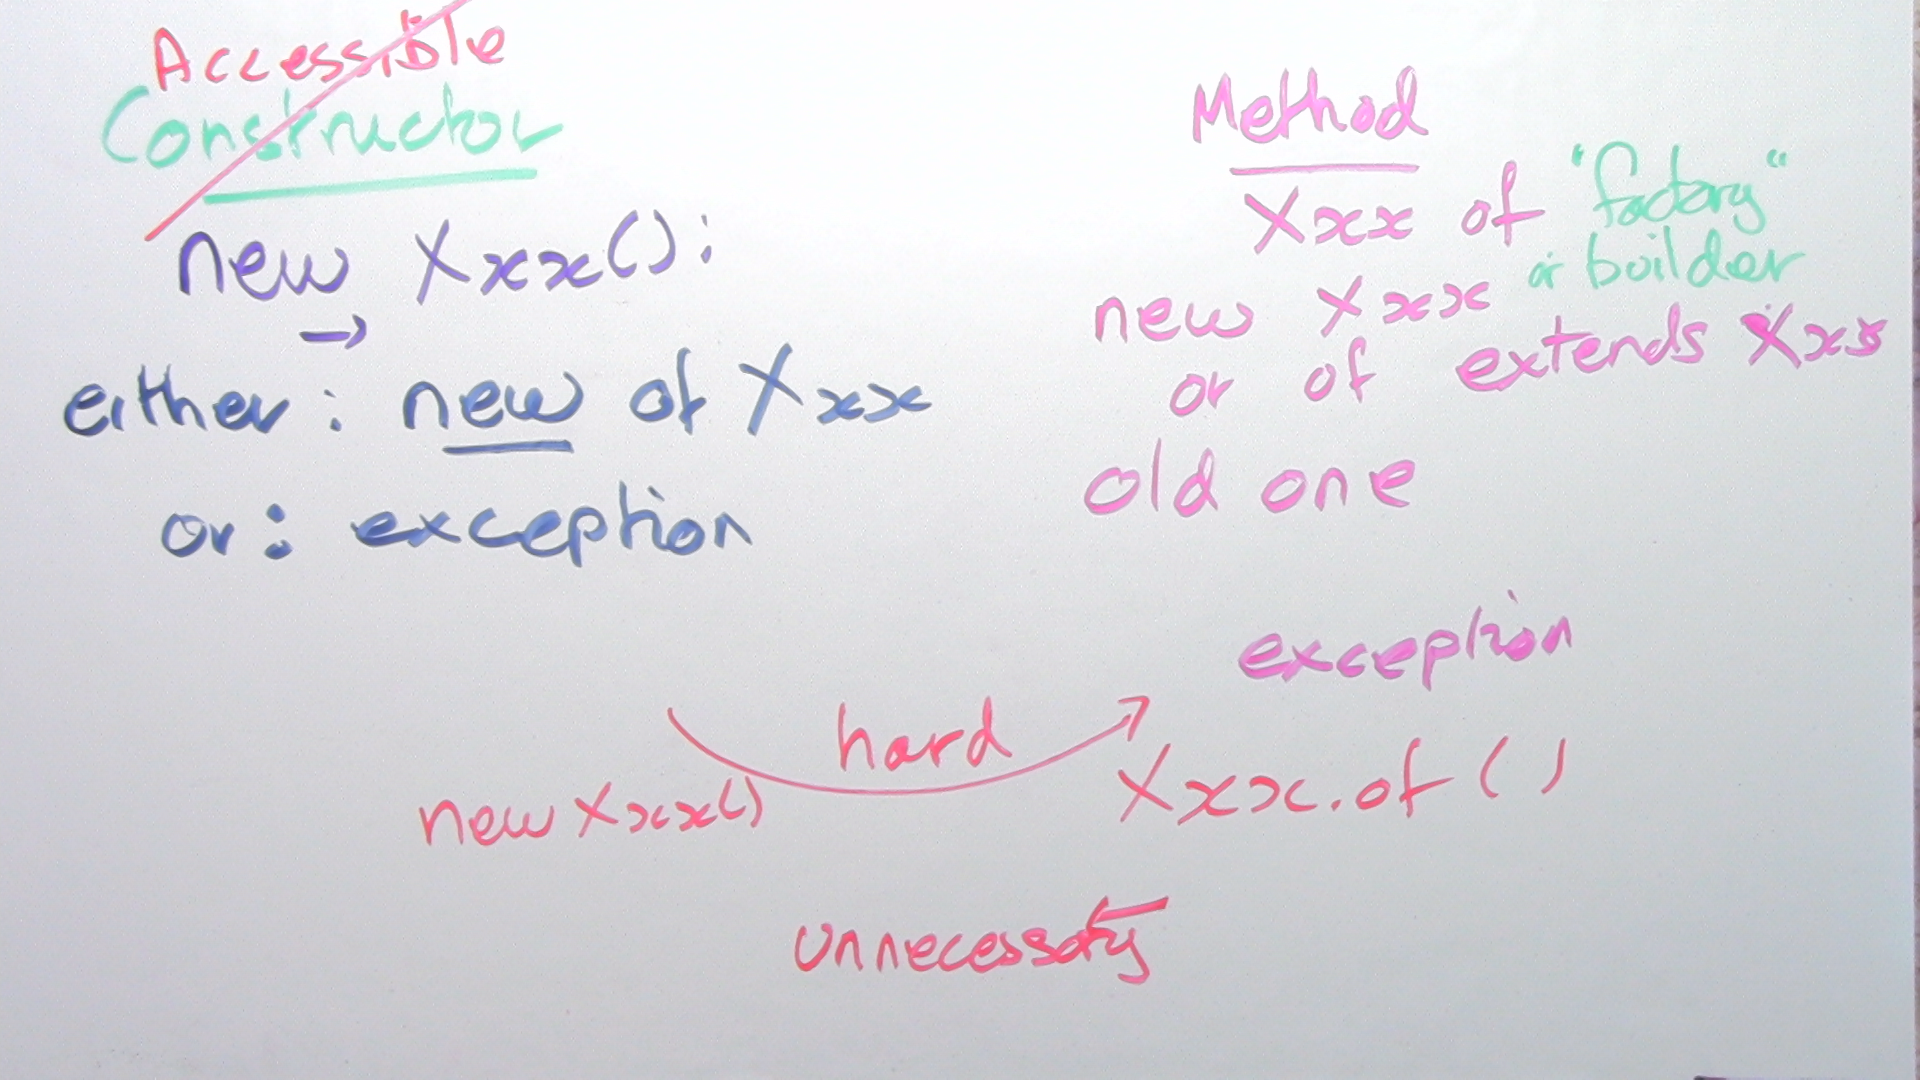 Accessible
Constructor
new Xxx():
→
either: new of Xxx
or: exception
Method
Xxx of "factory"
or builder
new Xxx
or of extends Xxx
old one
exception
hard
new Xxx()
Xxx.of()
unnecessary